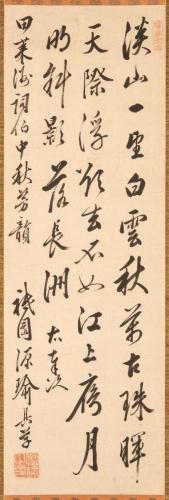 淡山一望白雲秋萬古珠暉
天際浮去不如江上月
明斜影落長洲 右奉次
田葉海詞伯中秋芳韻
祇園源瑜具草